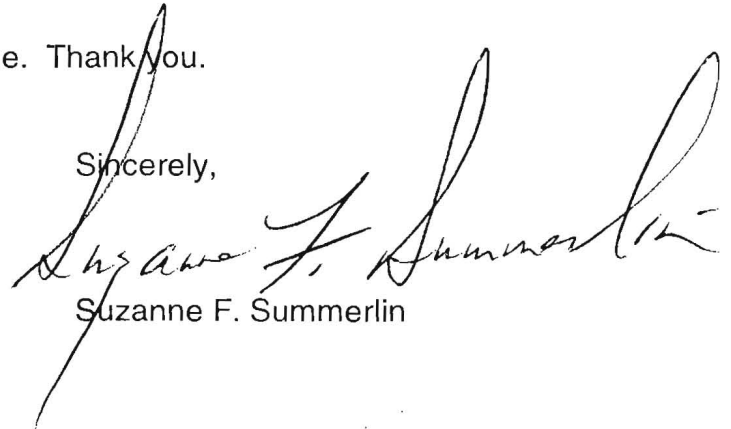 e. Thank you.
Sincerely,
Suzanne F. Summerlin
Suzanne F. Summerlin